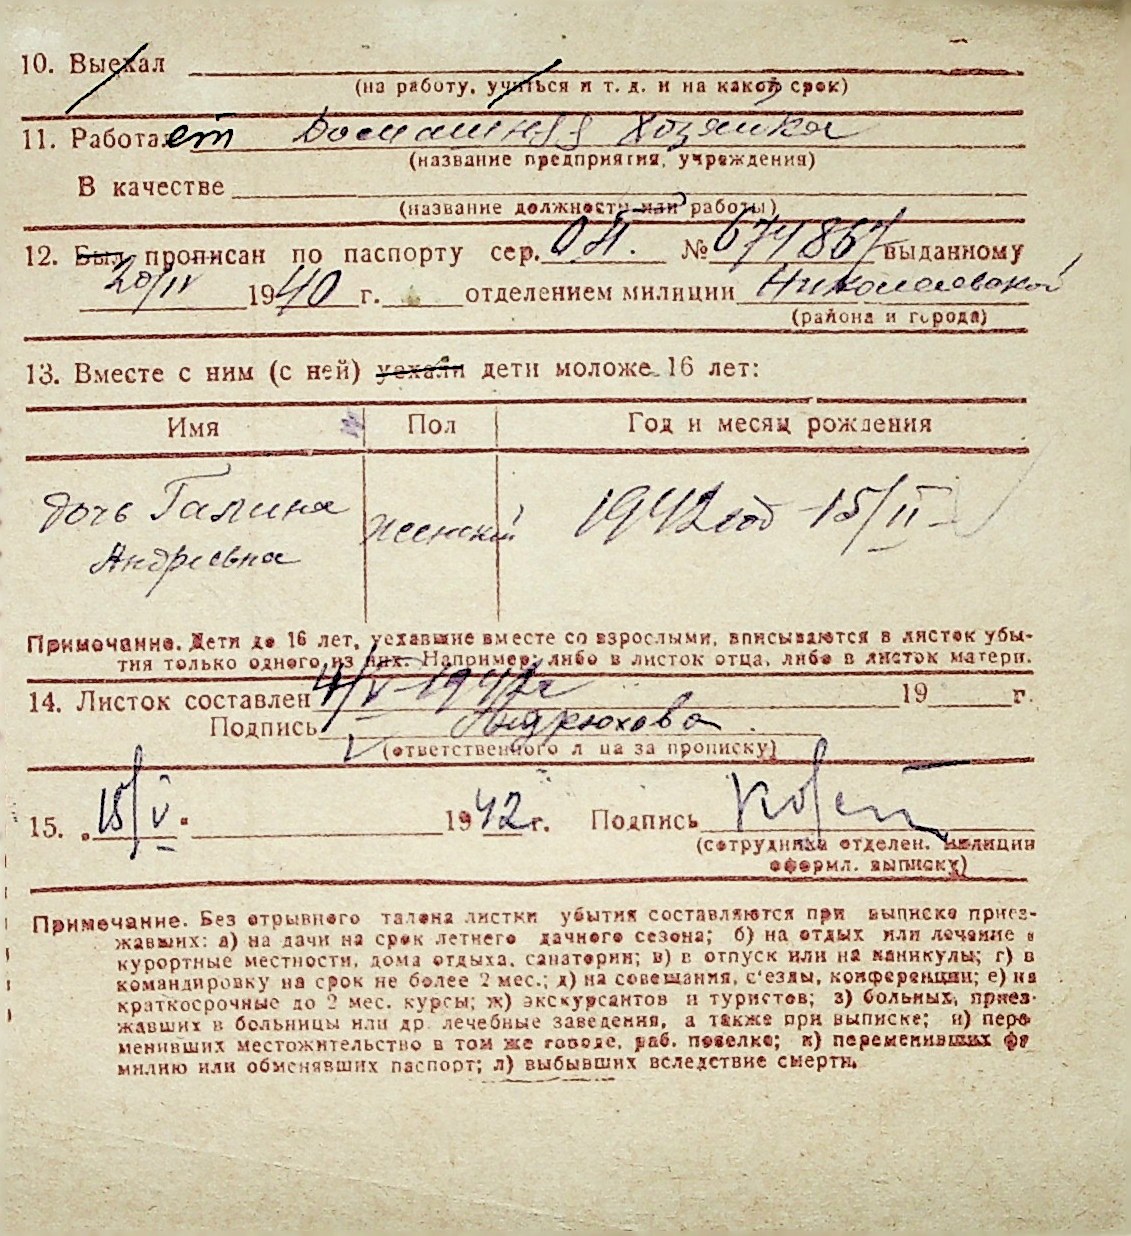 10. Выехал
(на работу, учиться и т. д. и на какой срок)
11. Работает Домашняя хозяйка
(название предприятия, учреждения)
В качестве
(название должности или работы)
12. Был прописан по паспорту сер. № 674867 выданному
20/IV 1940 г. отделением милиции Николаевской
(района и города)
13. Вместе с ним (с ней) уехали дети моложе 16 лет:
Имя Пол Год и месяц рождения
дочь Галина женский 1942 год 15/II
Андреевна
Примечание. Дети до 16 лет, уехавшие вместе со взрослыми, вписываются в листок убы-
тия только одного из них. Например: либо в листок отца, либо в листок матери.
14. Листок составлен 4/V 1942 г 19 г.
Подпись Андрюхова
(ответственного л ца за прописку)
15. „15/V“ 1942 г. Подпись
(сотрудника отделен. милиции
оформл. выписку)
Примечание. Без отрывного талона листки убытия составляются при выписке приез-
жавших: а) на дачи на срок летнего дачного сезона; б) на отдых или лечение в
курортные местности, дома отдыха, санатории; в) в отпуск или на каникулы; г) в
командировку на срок не более 2 мес.; д) на совещания, с'езды, конференции; е) на
краткосрочные до 2 мес. курсы; ж) экскурсантов и туристов; з) больных, приез-
жавших в больницы или др. лечебные заведения, а также при выписке; и) пере
менивших местожительство в том же городе, раб. поселке; к) переменивших фа
милию или обменявших паспорт; л) выбывших вследствие смерти.